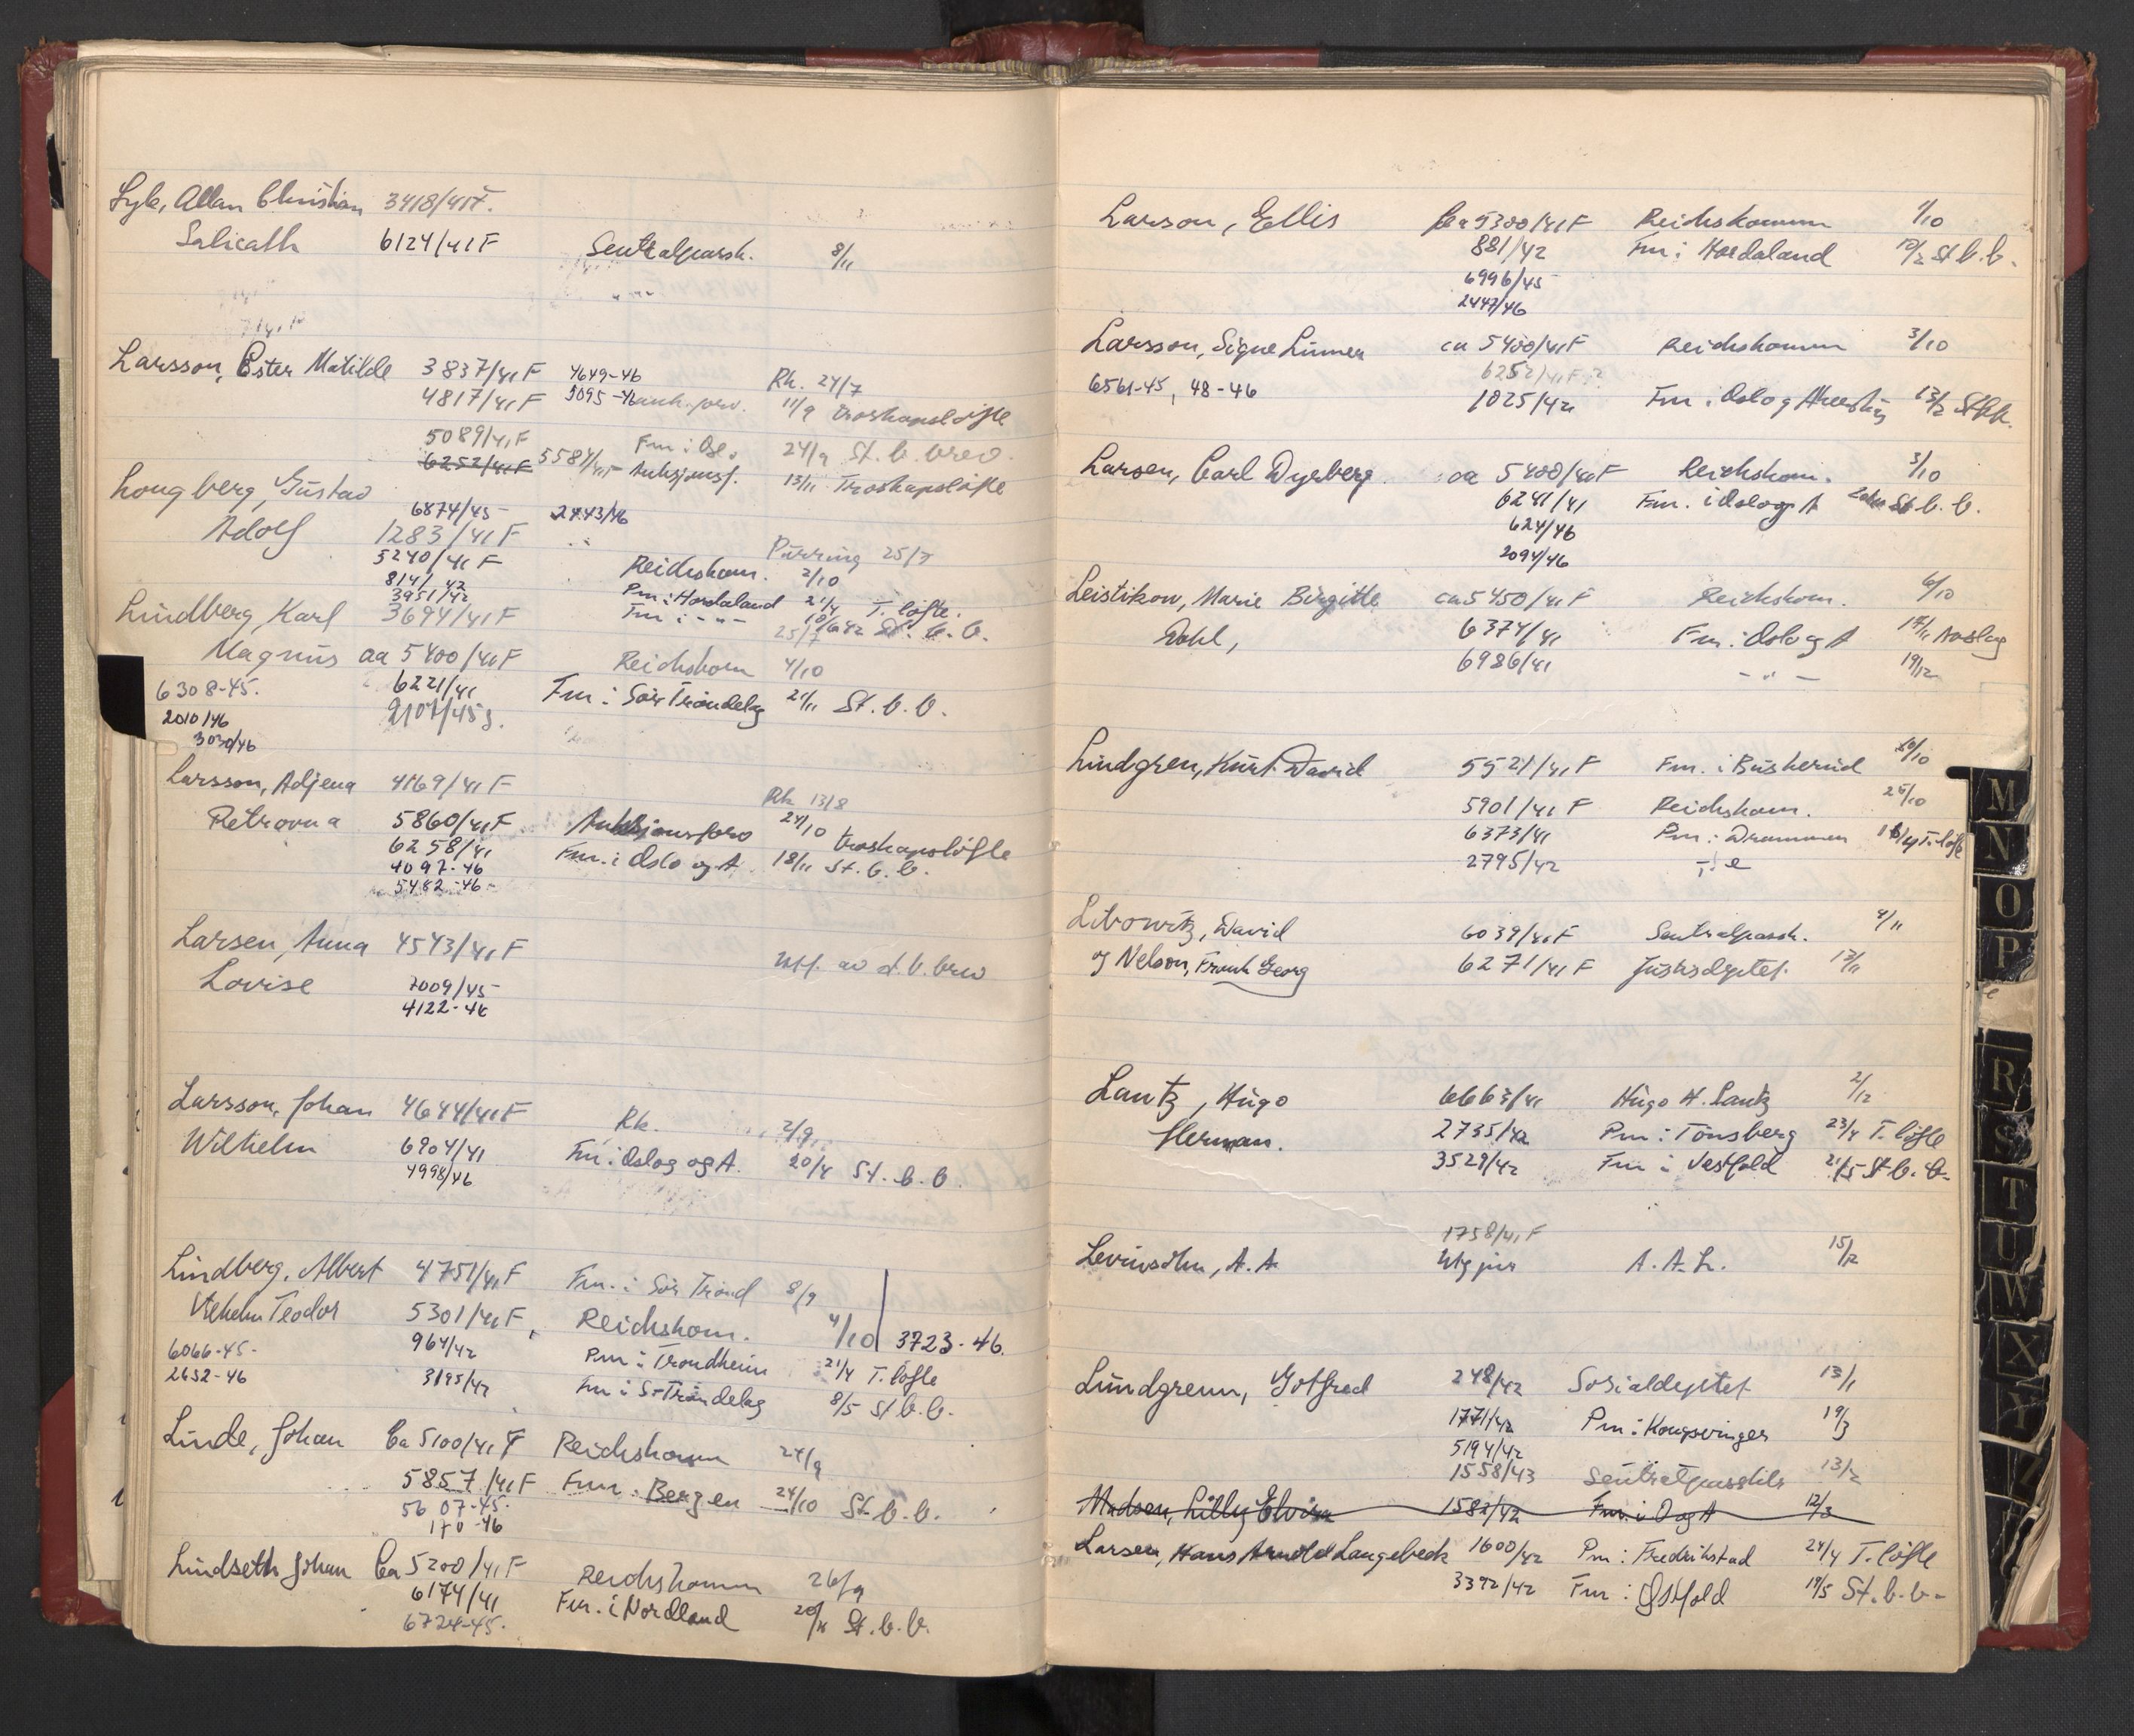 Lyle, Allan Christian 3418/41F.
Salicath 6124/41F Sentralpassk. 8/11
Larsson, Ester Matilde 3837/41F 4649-46 Rk. 24/7
4817/41F 5095-46 11/9 troskapsløfte
5089/41F Fm i Osl. 24/9 St.b.brev.
6252/41F 5584/41F Auksjonsf. 13/11 Troskapsløfte
Longberg, Gustav 6874/45 2443/46
Adolf 1283/41F Purring 25/7
5240/41F Reichskom. 2/10
814/42 Pm i Hordaland 21/4 T. løfte.
3951/42 Fm i -"- St. b. b.
Lindberg, Karl 3694/41F 25/7
Magnus ca 5400/41F Reichskom 4/10
6308-45. 6221/41 Fm i Sør Trøndelag 21/11 St. b. b.
2010/46 2107/45
3030/46
Larsson, Adjena 4169/41F Rk 13/8
Petrovna 5860/41F Auksjonsforv 24/10 troskapsløfte
6258/41 Fm. i Oslo og A 18/11 St. b. b.
4097-46
5482-46
Larsen, Anna 4543/41F utf. av st.b.brev
Lovise 7009/45
4122-46
Larsson, Johan 4644/41F Rk. 2/9
Wilhelm 6904/41 Fm i Oslo og A. 20/4 St. b. b.
4998/46
Lindberg, Albert 4751/41F Fm. i Sør Trønd 8/9
Vilhelm Teodor 5301/41F, Reichskom. 4/10 3723-46.
6066-45- 964/42 Pm i Trondheim 21/4 T. løfte
2652-46 3195/42 Fm i S-Trøndelag 8/5 St b.b.
Linde, Johan Ca 5100/41F Reichskomm 24/9
5857/41F Fm i Bergen 24/10 St b. b.
5607-45.
170-46
Lindseth Johan Ca 5200/41F Reichskomm 26/9
6174/41 Fm. i Nordland St. b. b.
6724-45.
Larson, Ellis Ca 5300/41F Reichskomm 1/10
881/42 Fm i Hordaland 10/2 St b. b.
6996/45
2447/46
Larsson, Signe Linnea ca 5400/41F Reichskomm 3/10
6252/41F?
6561-45, 48-46 1025/42 Fm i Oslo og Akershus 13/2 St.b.b.
Larsen, Carl Dyrberg ca 5400/41F Reichskom. 3/10
6241/41 Fm. i Oslo og A St b. b.
624/46
2094/46
Leistikow, Marie Birgitte ca 5450/41F Reichskom. 6/10
Dahl, 6374/41 Fm. i Oslo og A Avslag
6986/41 -"- 19/12
Lindgren, Kurt David 5521/41F Fm. i Buskerud 10/10
5901/41F Reichskom. 25/10
6373/41 Pm i Drammen T. løfte
2795/42
Libowitz, David 6039/41F Sentralpassk. 4/11
og Nelson, Frank Georg 6271/41F Justisdeptet.
Lantz, Hugo 6663/41 Hugo H. Lantz 2/12
Herman. 2735/42 Pm i Tønsberg 23/4 T. løfte
3529/42 Fm i Vestfold 21/5 St b. b.
1758/41F
Levinsohn, A. A Utgjør A. A. L. 15/12
Lundgrenn, Gotfred 248/42 Sosialdeptet 13/1
1771/42 Pm i Kongsvinger 19/3
5194/42
1558/43 Sentralpasskth 13/2
Madsen, Lilly Elvira 1582/42 Fm. i O og A 12/3
Larsen, Hans Arnold Langebeck 1600/42 Pm i Fredrikstad 24/4 T. løfte
3392/42 Fm i Østfold 19/5 St. b. b.
M
N
O
P
R
S
T
U
W
X
Y